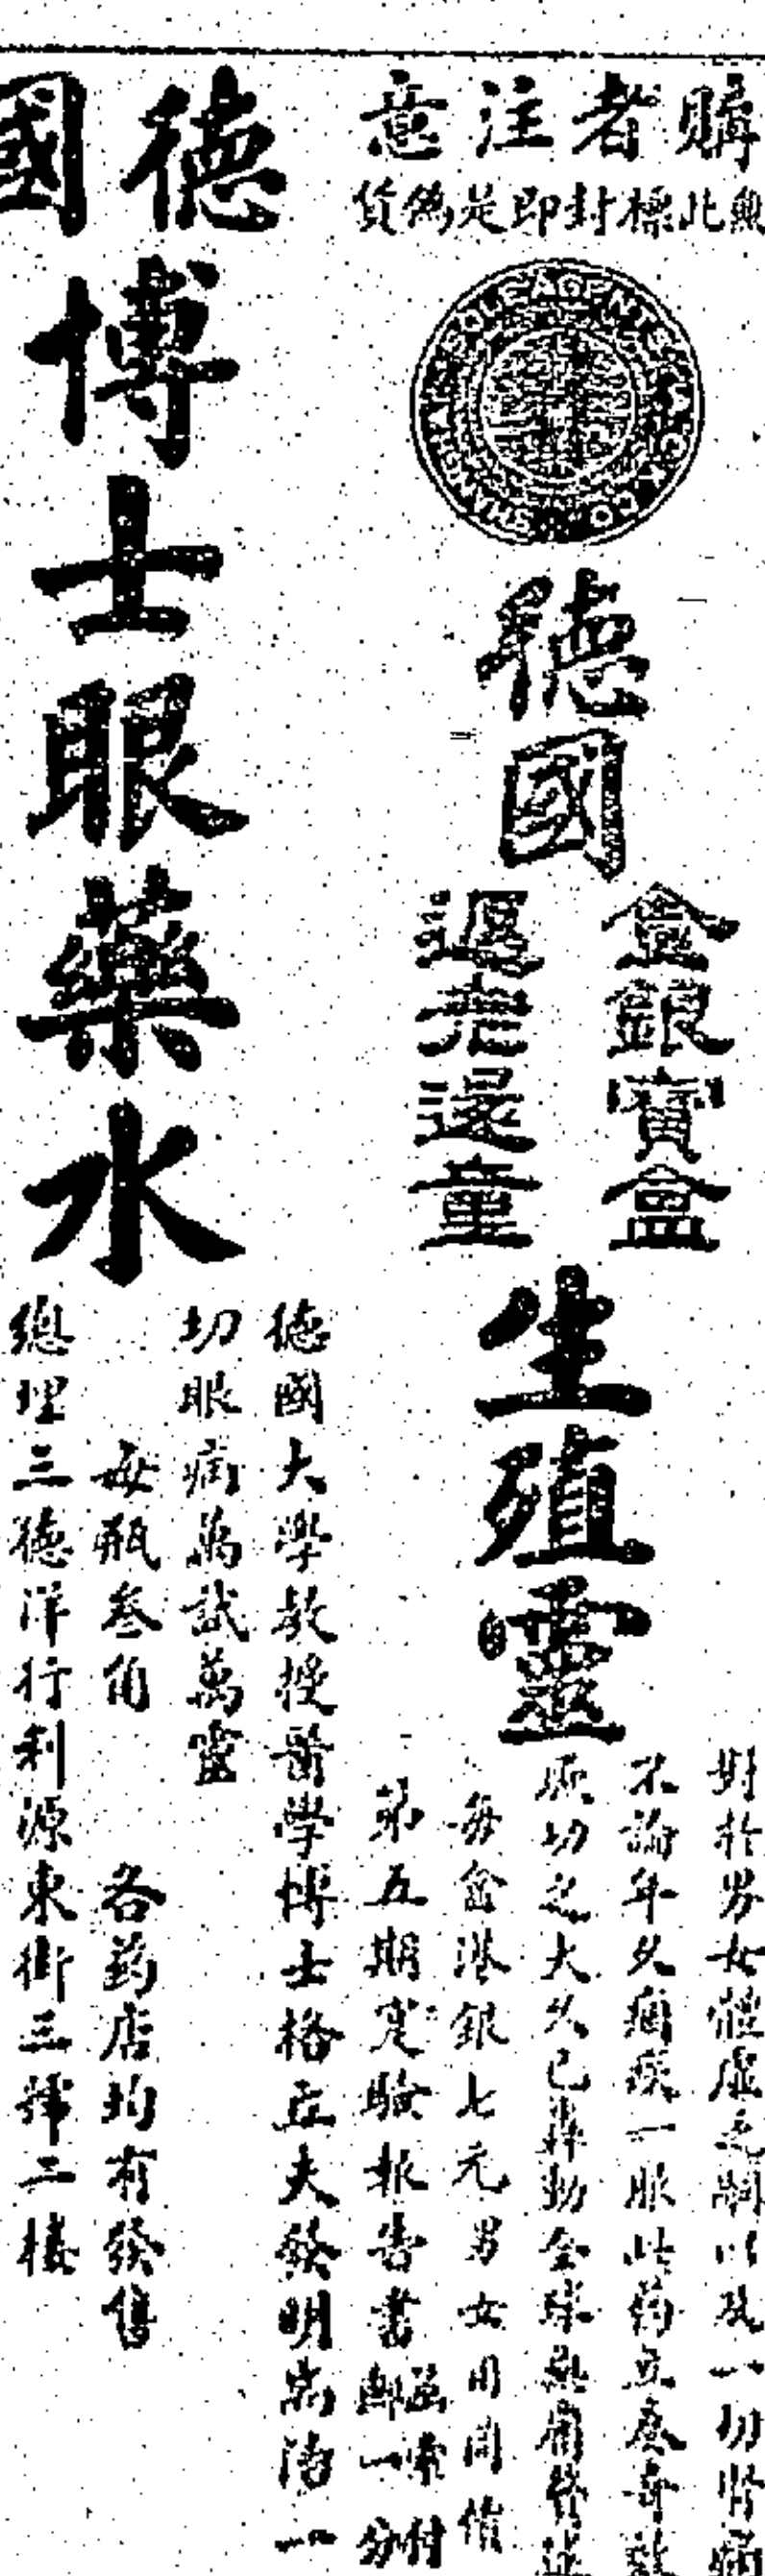 購者注意
無此標封即是偽貨
SHANGHAI SOLE AGENTS CO
德國
金銀寶盒
返老還童
生殖靈
對於男女體虛之關以及一切腎
不論年久痼疾一服此药立奏奇效
成功之大久已轟動全球無庸
每盒港銀七元男女用同價
第五期實驗報告書函索付郵一分
德國
博士眼藥水
德國大學教授醫學博士格立夫發明耑治一
切眼病萬試萬靈
每瓶叁角 各药店均有發售
總理三德洋行利源東街三號二樓